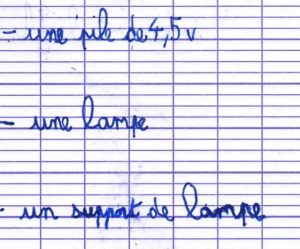 - une pile de 4,5 v
- une lampe
- un support de lampe